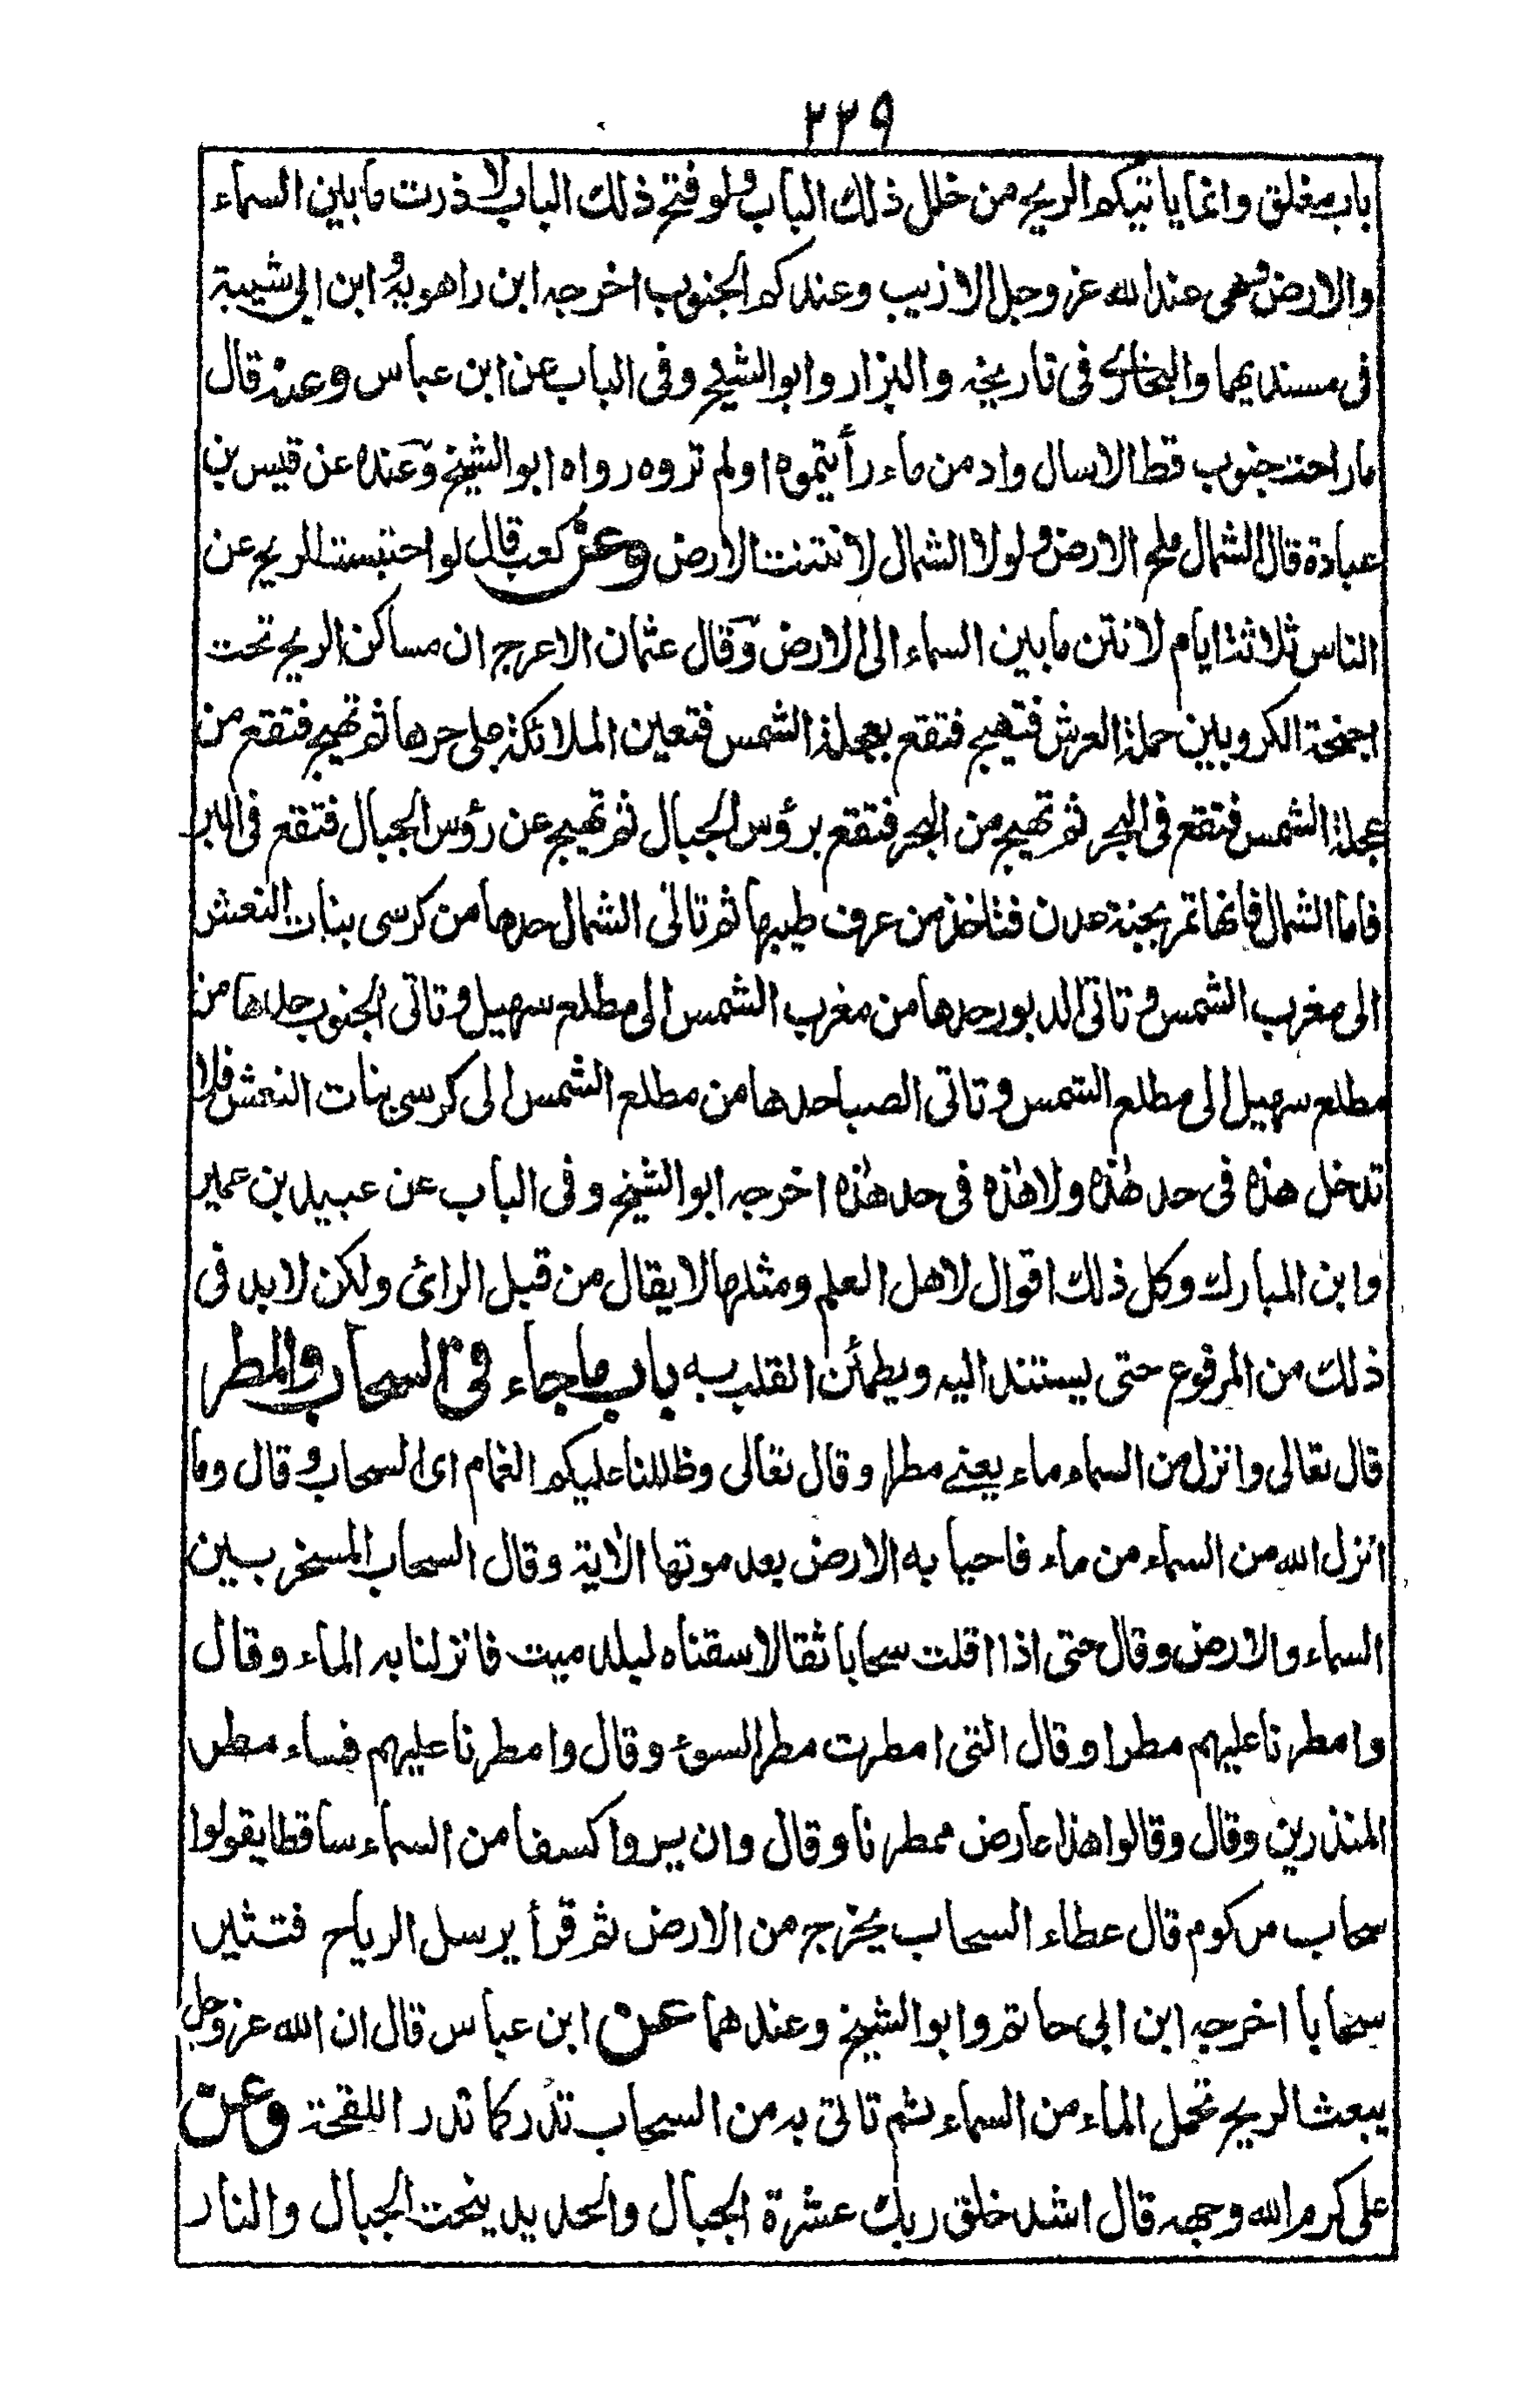 ٢٣٩
باب مغلق وانما ياتيكم الريح من خلل ذلك الباب ولو فتح ذلك الباب لاذرت ما بين السماء
والارض وهى عند الله عز وجل الازيب وعندكم الجنوب اخرجه ابن راهويه وابن ابى شيبة
فى مسنديهما والبخارى فى تاريخه والبزار وابو الشيخ وفى الباب عن ابن عباس وعنه قال
ما راحت جنوب قط الا سال واد من ماء رأيتموه او لم تروه رواه ابو الشيخ وعنده عن قيس بن
عبادة قال الشمال ملح الارض ولولا الشمال لانتنت الارض وعن كعب قال لو احتبست الريح عن
الناس ثلاثة ايام لانتن ما بين السماء الى الارض وقال عثمان الاعرج ان مساكن الريح تحت
اجنحة الكروبين حملة العرش فتهيج فتقع بعجلة الشمس فتعين الملائكة على جرها ثم تهيج فتقع من
عجلة الشمس فتقع فى البحر ثم تهيج من البحر فتقع برؤس الجبال ثم تهيج عن رؤس الجبال فتقع فى البر
فاما الشمال فانها تمر بجنة عدن فتاخذ من عرف طيبها ثم تاتى الشمال حدها من كرسى بنات النعش
الى مغرب الشمس وتاتى الدبور حدها من مغرب الشمس الى مطلع سهيل وتاتى الجنوب حدها من
مطلع سهيل الى مطلع الشمس وتاتى الصبا حدها من مطلع الشمس الى كرسى بنات النعش فلا
تدخل هذه فى حد هذه ولا هذه فى حد هذه اخرجه ابو الشيخ وفى الباب عن عبيد بن عمير
وابن المبارك وكل ذلك اقوال لاهل العلم ومثلها لا يقال من قبل الرائ ولكن لا بد فى
ذلك من المرفوع حتى يستند اليه ويطمئن القلب به باب ما جاء فى السحاب والمطر
قال تعالى وانزل من السماء ماء يعنے مطرا وقال تعالى وظللنا عليكم الغمام اى السحاب وقال وما
انزل الله من السماء من ماء فاحيا به الارض بعد موتها الاية وقال السحاب المسخر بين
السماء والارض وقال حتى اذا اقلت سحابا ثقالا سقناه لبلد ميت فانزلنا به الماء وقال
وامطرنا عليهم مطرا وقال التى امطرت مطر السوء وقال وامطرنا عليهم فساء مطر
المنذرين وقال وقالوا هذا عارض ممطرنا وقال وان يروا كسفا من السماء ساقطا يقولوا
سحاب مركوم قال عطاء السحاب يخرج من الارض ثم قرأ يرسل الرياح فتثير
سحابا اخرجه ابن ابى حاتم وابو الشيخ وعندهما عن ابن عباس قال ان الله عز وجل
يبعث الريح تحمل الماء من السماء ثم تاتى به من السحاب تدر كما تدر اللقحة وعن
على كرم الله وجهه قال اشد خلق ربك عشرة الجبال والحديد ينحت الجبال والنار